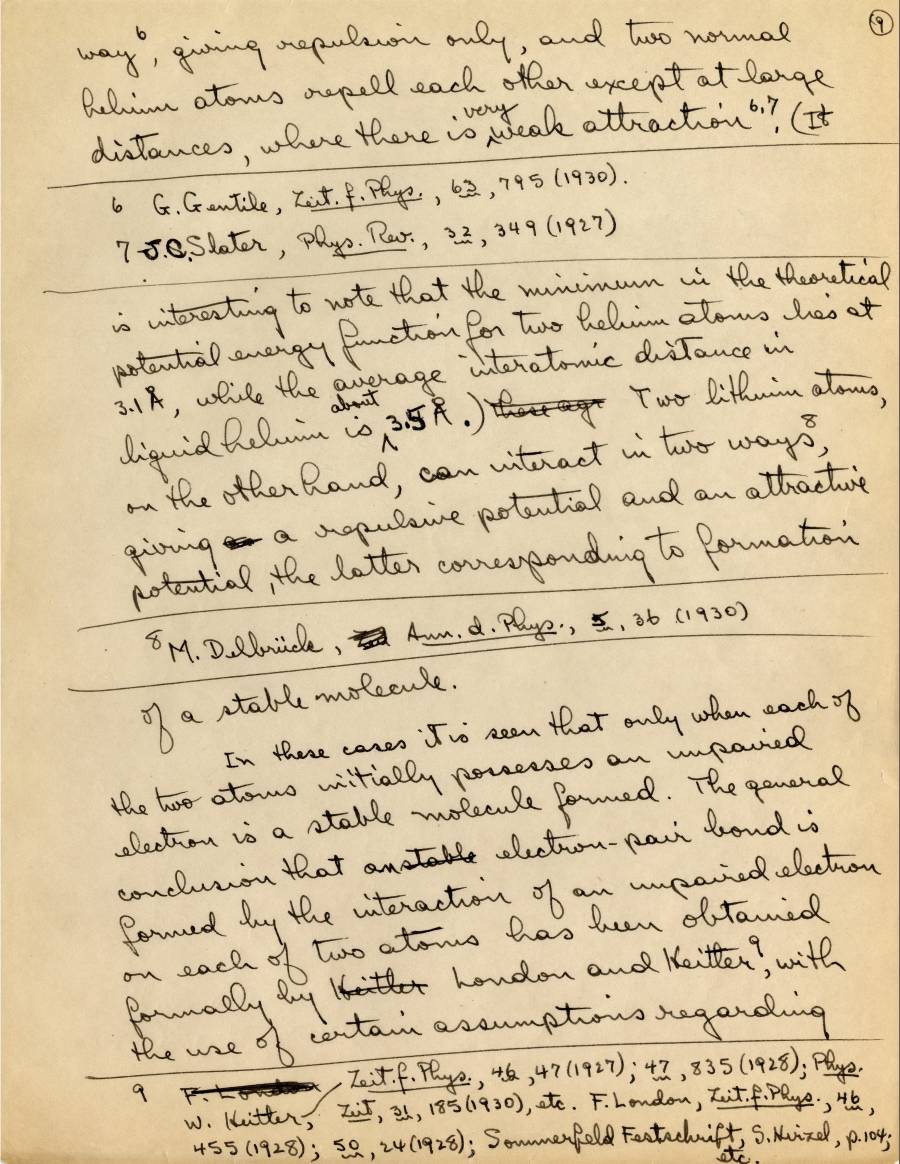 9
way⁶, giving repulsion only, and two normal
helium atoms repell each other except at large
distances, where there is very weak attraction⁶,⁷. (It
6 G. Gentile, Zeit. f. Phys., 63, 795 (1930).
7 J.C. Slater, Phys. Rev., 32, 349 (1927)
is interesting to note that the minimum in the theoretical
potential energy function for two helium atoms lies at
3.1 Å, while the average interatomic distance in
liquid helium is about 3.5 Å.) Two lithium atoms,
on the other hand, can interact in two ways⁸,
giving a repulsive potential and an attractive
potential, the latter corresponding to formation
8 M. Delbrück, Ann. d. Phys., 5, 36 (1930)
of a stable molecule.
In these cases it is seen that only when each of
the two atoms initially possesses an unpaired
electron is a stable molecule formed. The general
conclusion that an stable electron-pair bond is
formed by the interaction of an unpaired electron
on each of two atoms has been obtained
formally by Heitler London and Heitler⁹, with
the use of certain assumptions regarding
9 F. London Zeit. f. Phys., 46, 47 (1927); 47, 835 (1928); Phys.
W. Heitler, Zeit, 31, 185 (1930), etc. F. London, Zeit. f. Phys., 46,
455 (1928); 50, 24 (1928); Sommerfeld Festschrift, S. Hirzel, p. 104;
etc.